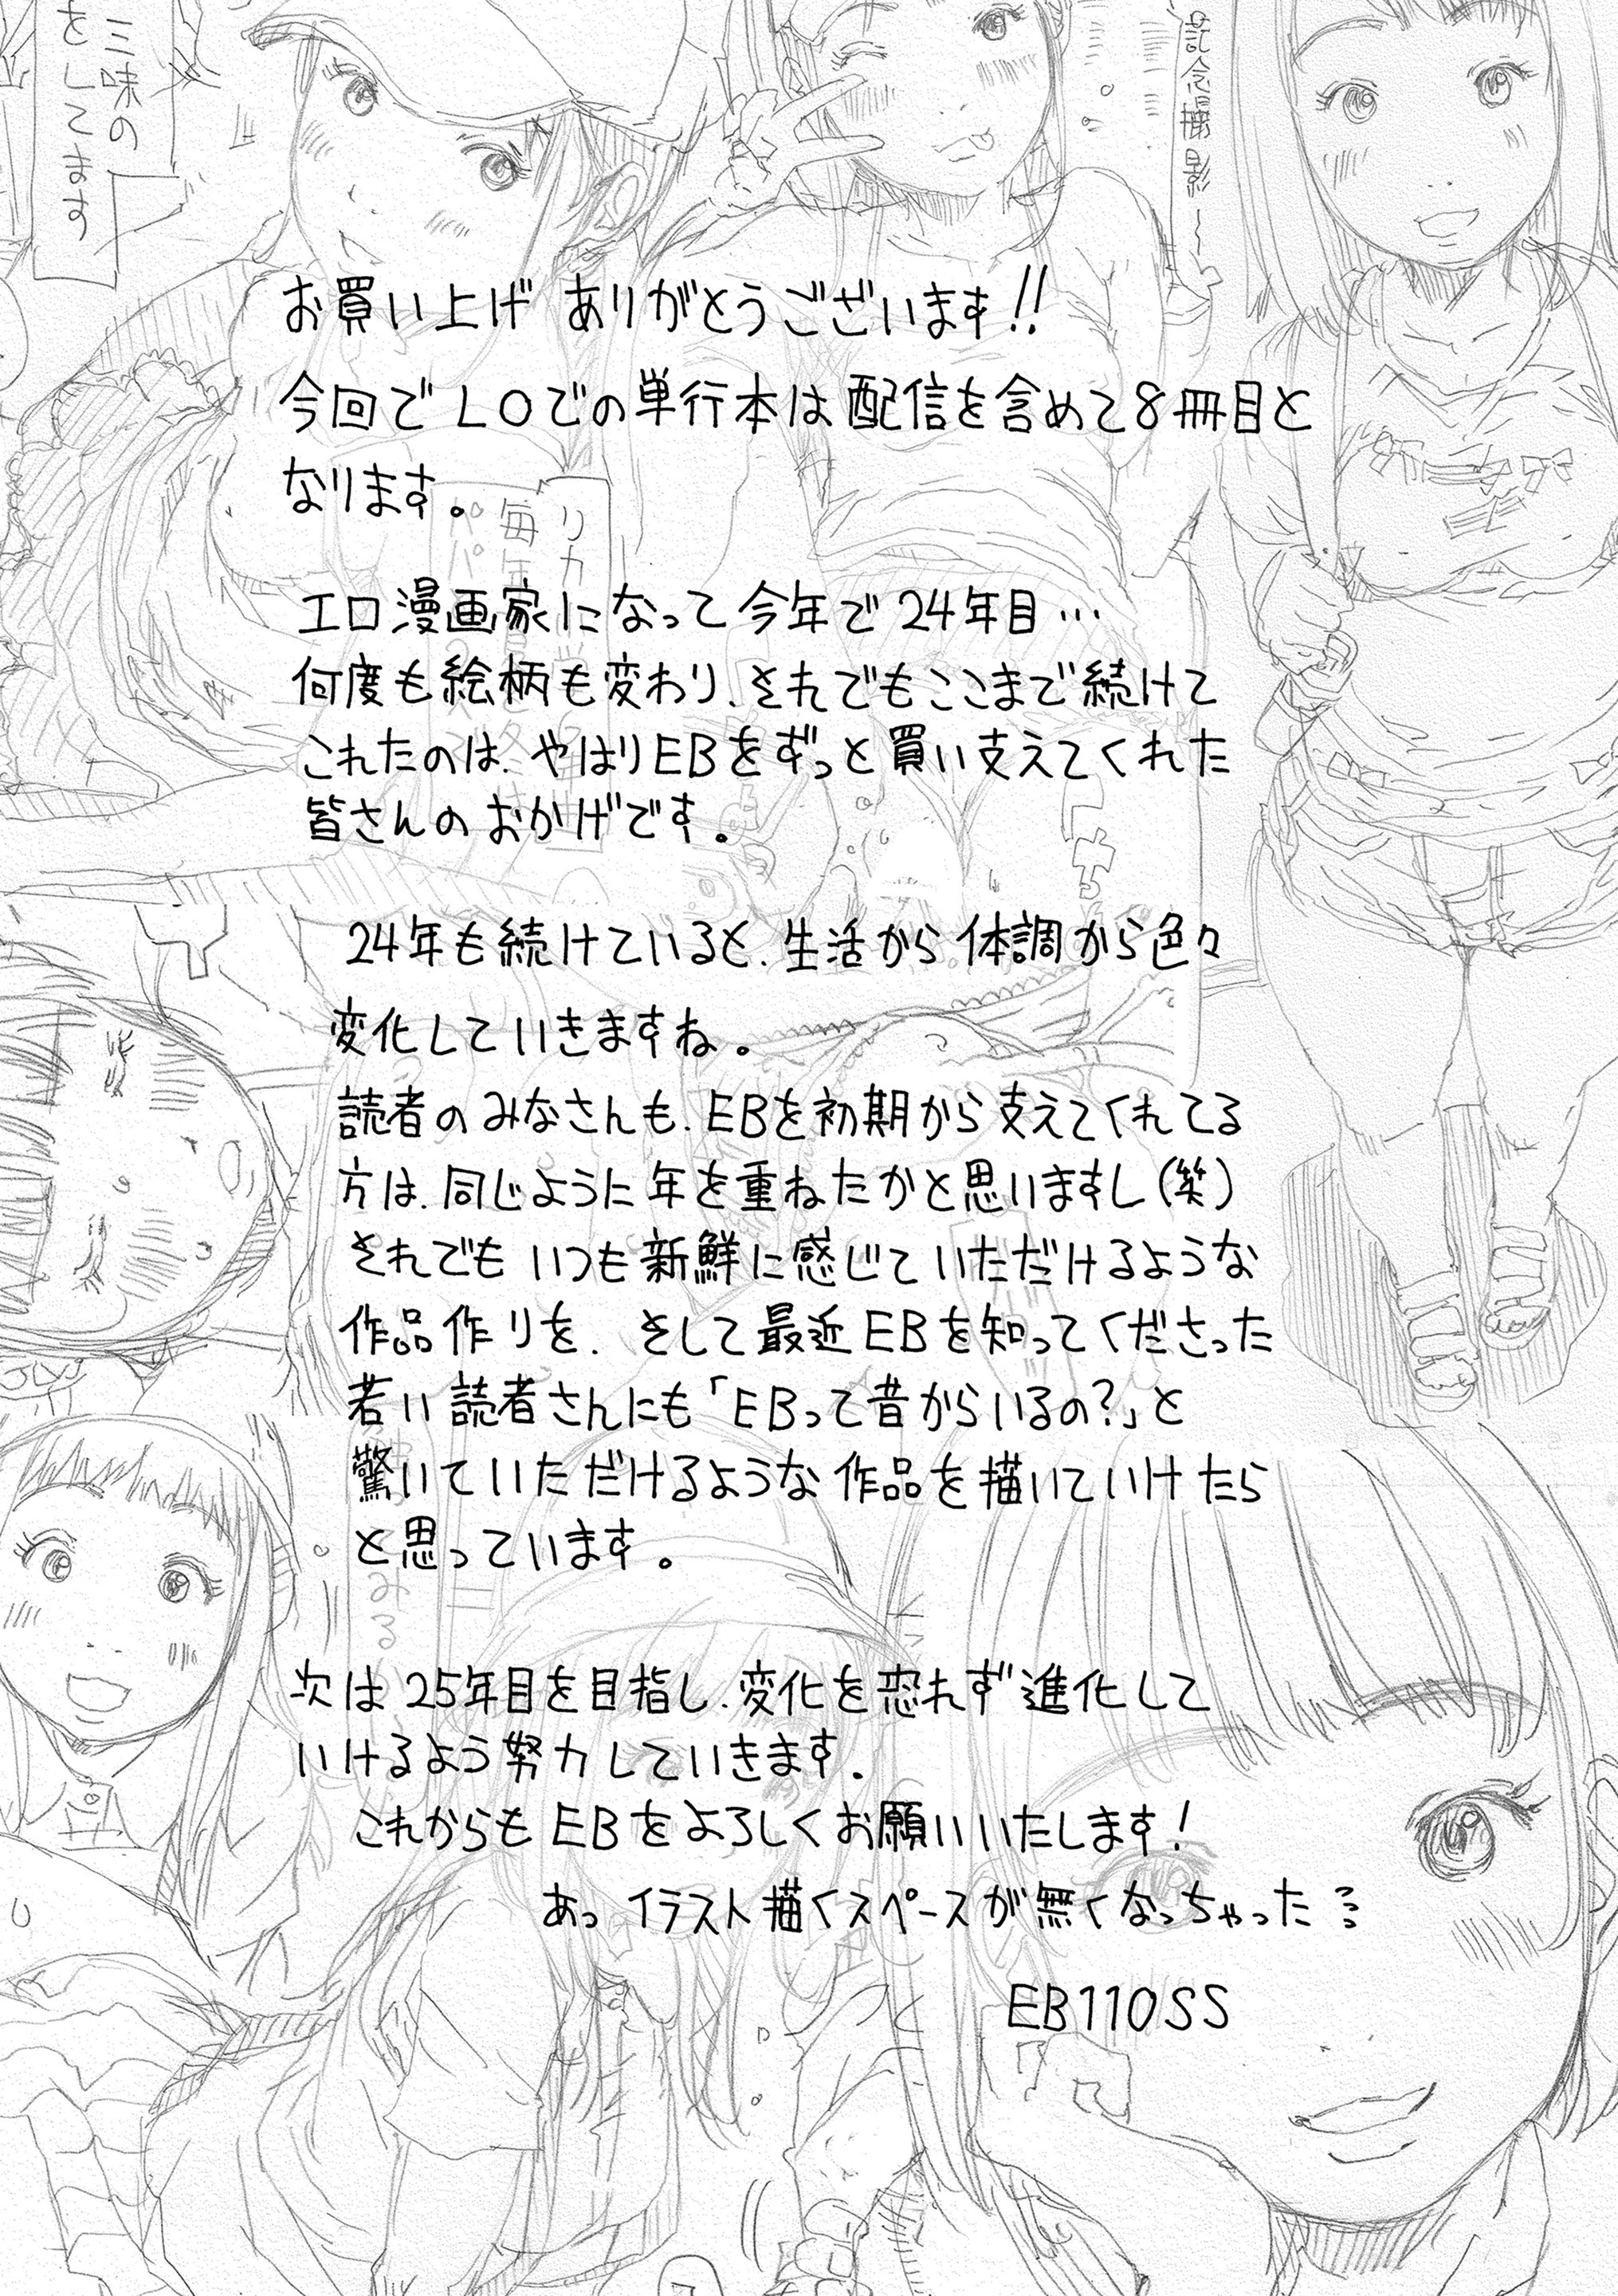 お買い上げ ありがとうございます!!
今回でLOでの単行本は配信を含めて8冊目と
なります。
エロ漫画家になって今年で24年目…
何度も絵柄も変わり、それでもここまで続けて
これたのは、やはりEBをずっと買い支えてくれた
皆さんのおかげです。
24年も続けていると、生活から体調から色々
変化していきますね。
読者のみなさんも、EBを初期から支えてくれてる
方は、同じように年を重ねたかと思いますし(笑)
それでもいつも新鮮に感じていただけるような
作品作りを、そして最近EBを知ってくださった
若い読者さんにも「EBって昔からいるの?」と
驚いていただけるような作品を描いていけたら
と思っています。
次は25年目を目指し、変化を恐れず進化して
いけるよう努力していきます。
これからもEBをよろしくお願いいたします!
あっイラスト描くスペースが無くなっちゃった
EB110SS
記念撮影~
三昧の
をしてます